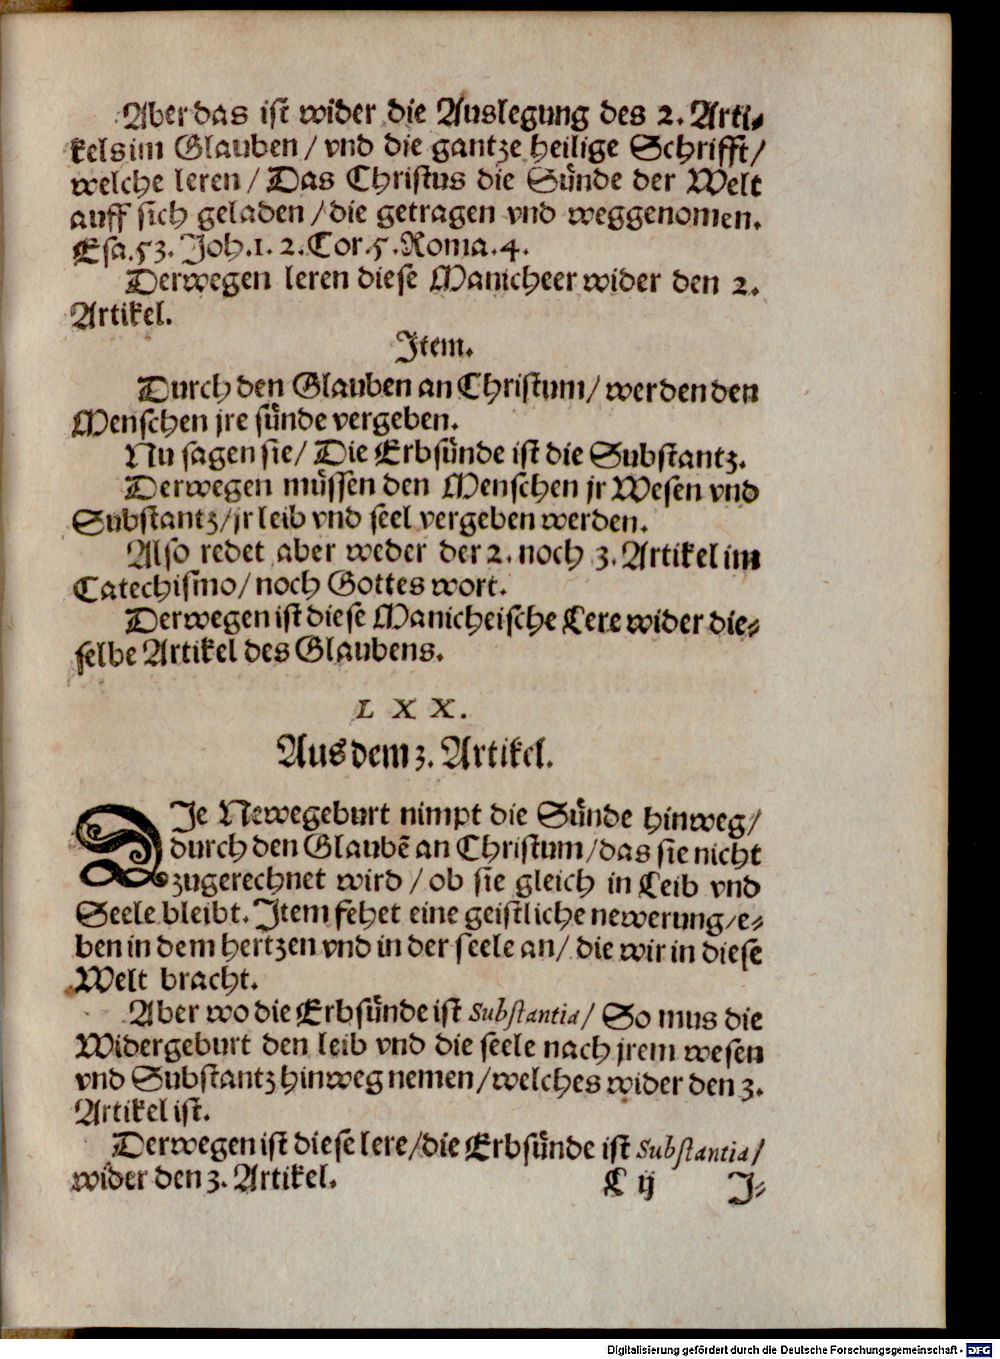 Aber das ist wider die Auslegung des 2. Arti⸗
kels im Glauben / vnd die gantze heilige Schrifft /
welche leren / Das Christus die Sünde der Welt
auff sich geladen / die getragen vnd weggenomen.
Esa. 53. Joh. 1. 2. Cor. 5. Roma. 4.
Derwegen leren diese Manicheer wider den 2.
Artikel.
Item.
Durch den Glauben an Christum / werden den
Menschen jre sünde vergeben.
Nu sagen sie / Die Erbsünde ist die Substantz.
Derwegen müssen den Menschen jr Wesen vnd
Substantz / jr leib vnd seel vergeben werden.
Also redet aber weder der 2. noch 3. Artikel im
Catechismo / noch Gottes wort.
Derwegen ist diese Manicheische Lere wider die⸗
selbe Artikel des Glaubens.
LXX.
Aus dem 3. Artikel.
DIe Newegeburt nimpt die Sünde hinweg /
durch den Glaubẽ an Christum / das sie nicht
zugerechnet wird / ob sie gleich in Leib vnd
Seele bleibt. Item fehet eine geistliche newerung / e⸗
ben in dem hertzen vnd in der seele an / die wir in diese
Welt bracht.
Aber wo die Erbsünde ist Substantia / So mus die
Widergeburt den leib vnd die seele nach jrem wesen
vnd Substantz hinweg nemen / welches wider den 3.
Artikel ist.
Derwegen ist diese lere / die Erbsünde ist Substantia /
wider den 3. Artikel.
L ij J⸗
Digitalisierung gefördert durch die Deutsche Forschungsgemeinschaft - DFG